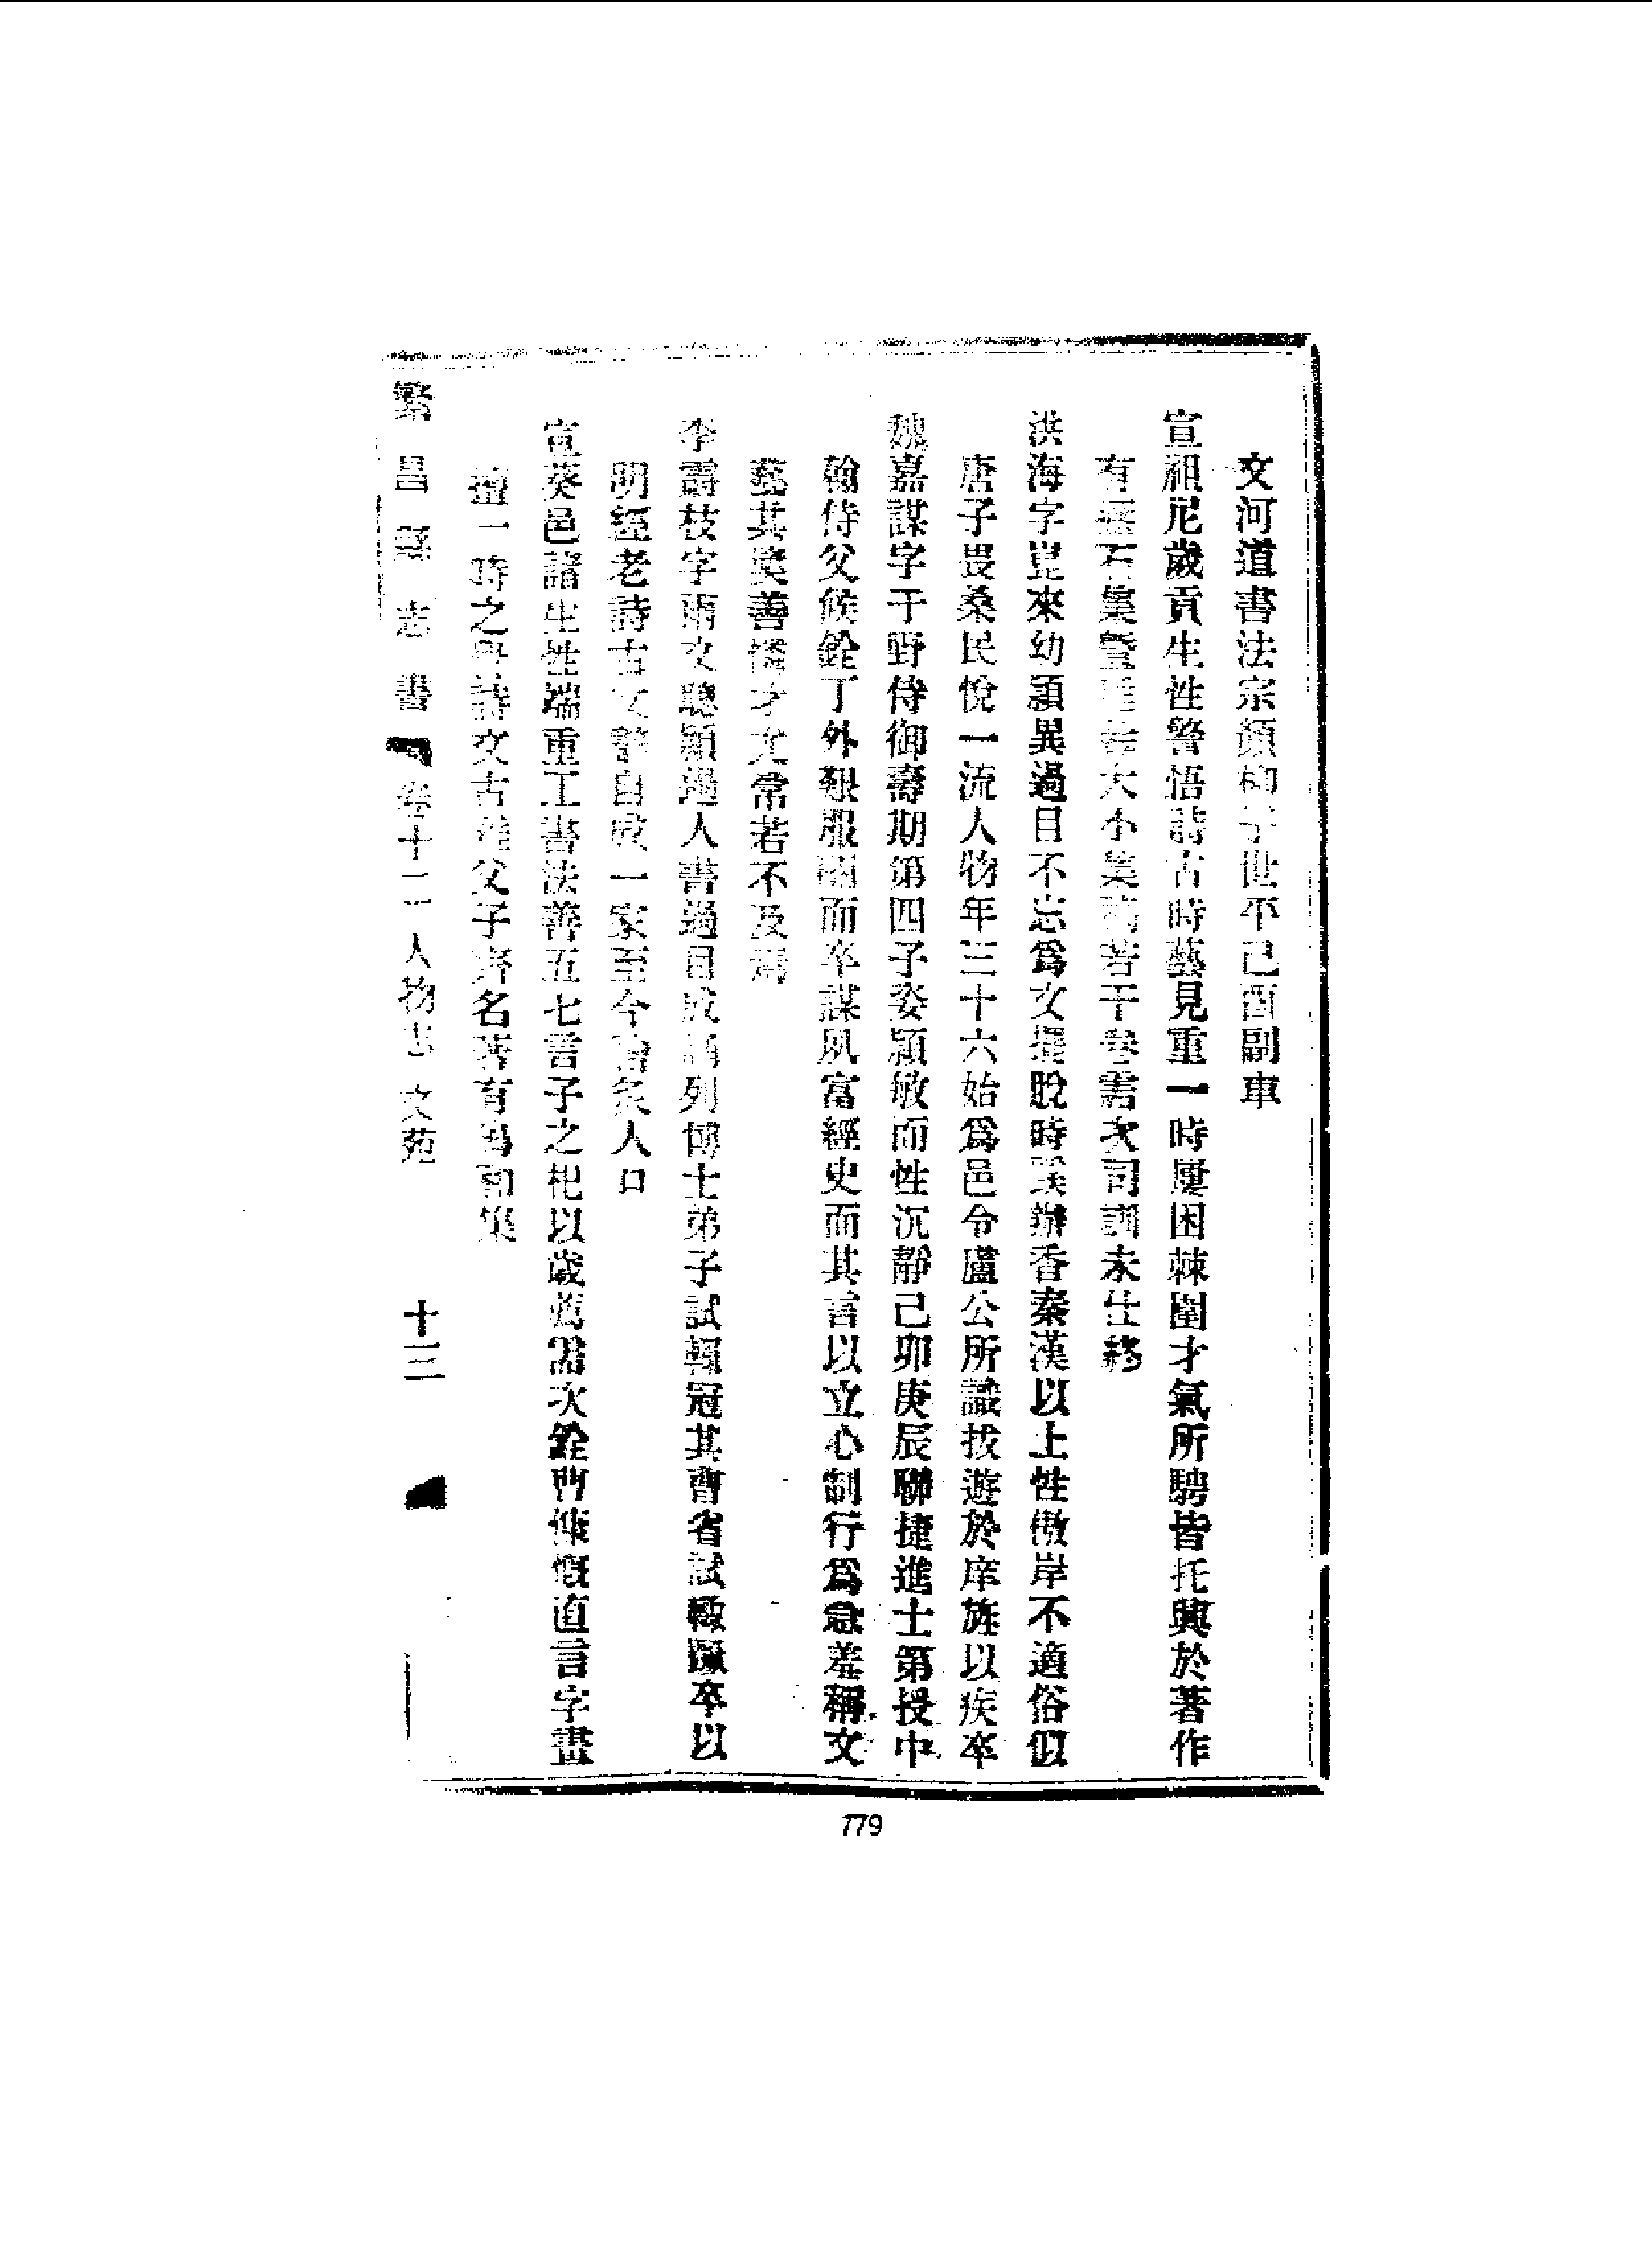 文河道書法宗顏柳子世丕己酉副車
宣祖尼歲貢生性警悟詩古時藝見重一時屢困棘圍才氣所騁皆托興於著作
有無石集暨大小美稿若干卷需次司訓未仕終
洪海字崑來幼穎異過目不忘爲文擺脫時蹊辦香秦漢以上性傲岸不適俗似
唐子畏桑民悅一流人物年三十六始爲邑令盧公所識拔遊於庠旋以疾卒
魏嘉謀字于野侍御壽期第四子姿穎敏而性沉靜己卯庚辰聯捷進士第授中
翰侍父候銓丁外艱服闋而卒謀夙富經史而其言以立心制行爲急羞稱文
藝其奬善憐才尤常若不及焉
李壽枝字雨文聰穎過人書過目成誦列博士弟子試輒冠其曹省試輒蹶卒以
明經老詩古文辭自成一家至今膾炙人口
宣葵邑諸生性端重工書法善五七言子之杞以歲薦需次銓曹慷慨直言字畫
擅一時之譽詩文古雅父子齊名著有塤和集
繁昌縣志書 卷十二 人物志 文苑 十三
779